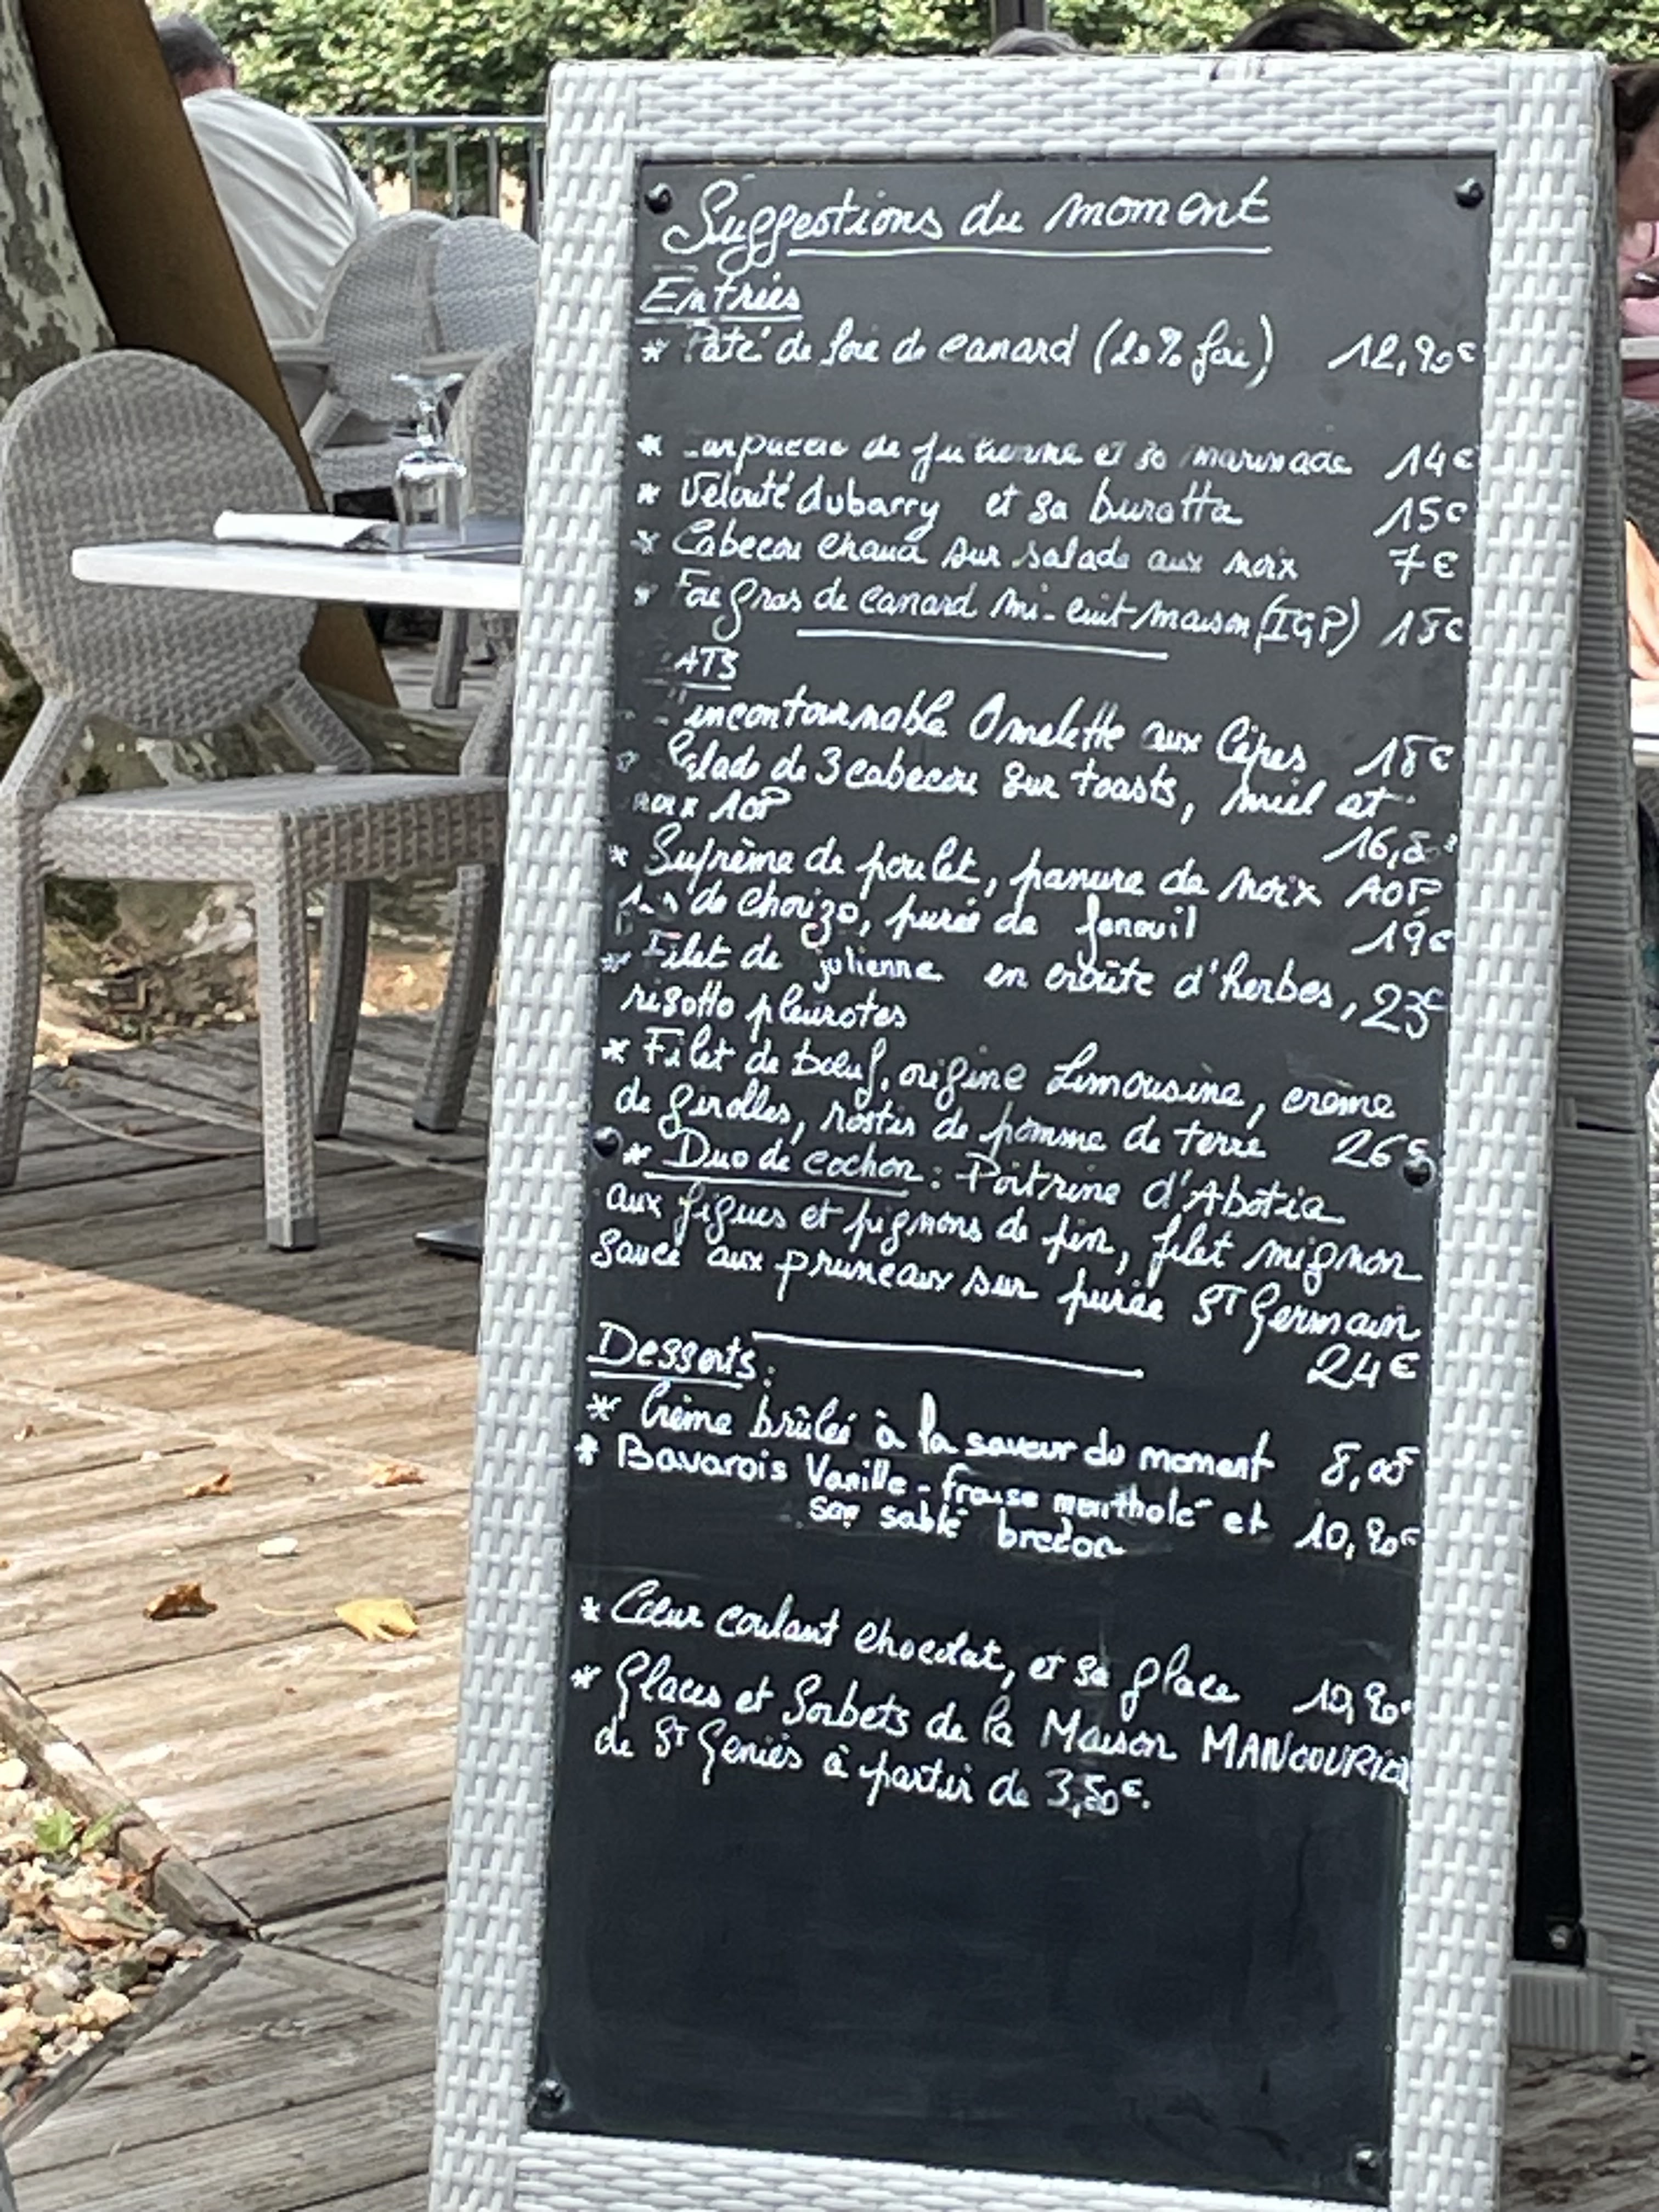 Suggestions du moment
Entrées
* Pâté de foie de canard (20% foie) 12,90€
* Carpaccio de julienne et sa marinade 14€
* Velouté dubarry et sa buratta 15€
* Cabecou chaud sur salade aux noix 7€
* Foie gras de canard mi-cuit maison (IGP) 18€
ATS
incontournable Omelette aux Cèpes 18€
Salade de 3 cabecou sur toasts, miel et
noix AOP 16,50
* Suprême de poulet, panure de noix AOP
de chorizo, purée de fenouil 19€
* Filet de julienne en croûte d'herbes, 23€
risotto pleurotes
* Filet de bœuf, origine Limousine, crème
de girolles, röstis de pomme de terre 26€
* Duo de cochon : Poitrine d'Abotia
aux figues et pignons de pin, filet mignon
sauce aux pruneaux sur purée St Germain
24€
Desserts :
* Crème brûlée à la saveur du moment 8,00€
* Bavarois Vanille - fraise mentholé et 10,90€
son sablé breton
* Cœur coulant chocolat, et sa glace 10,90€
* Glaces et Sorbets de la Maison MANOURIE
de St Geniès à partir de 3,50€.